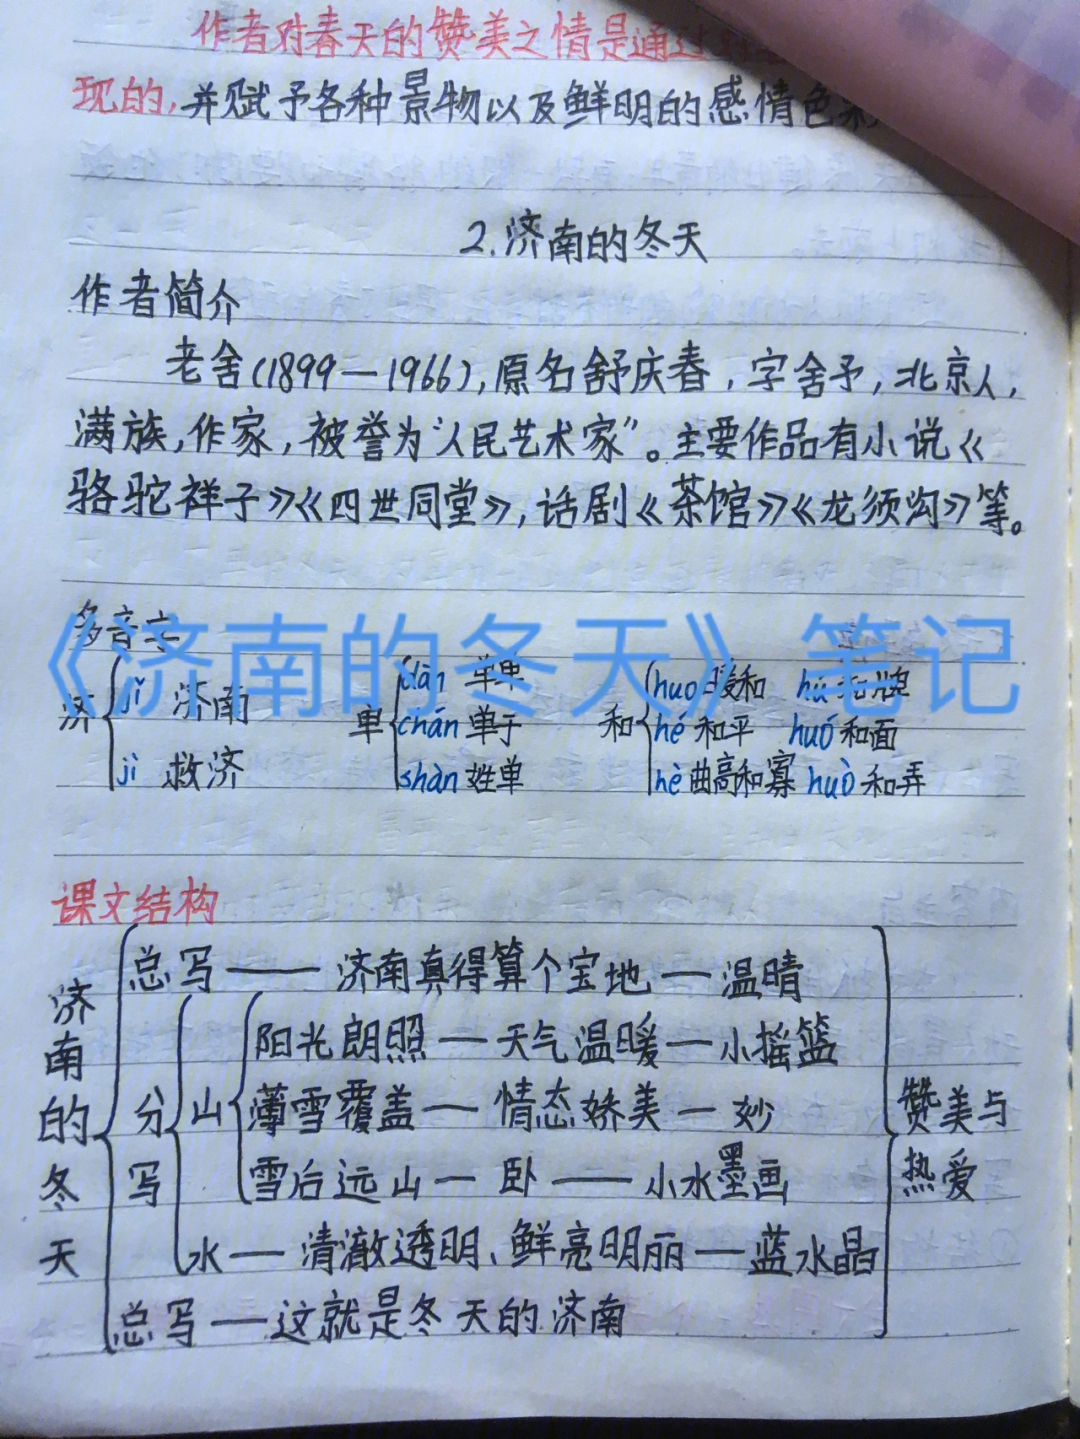 作者对春天的赞美之情是通过对
现的,并赋予各种景物以及鲜明的感情色彩
2.济南的冬天
作者简介
老舍(1899—1966),原名舒庆春,字舍予,北京人,
满族,作家,被誉为“人民艺术家”。主要作品有小说《
骆驼祥子》《四世同堂》,话剧《茶馆》《龙须沟》等。
《济南的冬天》笔记
多音字
济 jǐ 济南
jì 救济
单 dān 单单
chán 单于
shàn 姓单
和 huo 暖和 hú 和牌
hé 和平 huó 和面
hè 曲高和寡 huò 和弄
课文结构
济南的冬天
总写——济南真得算个宝地—温晴
分写
山
阳光朗照—天气温暖—小摇篮
薄雪覆盖—情态娇美—妙
雪后远山—卧——小水墨画
水—清澈透明、鲜亮明丽—蓝水晶
总写—这就是冬天的济南
赞美与
热爱